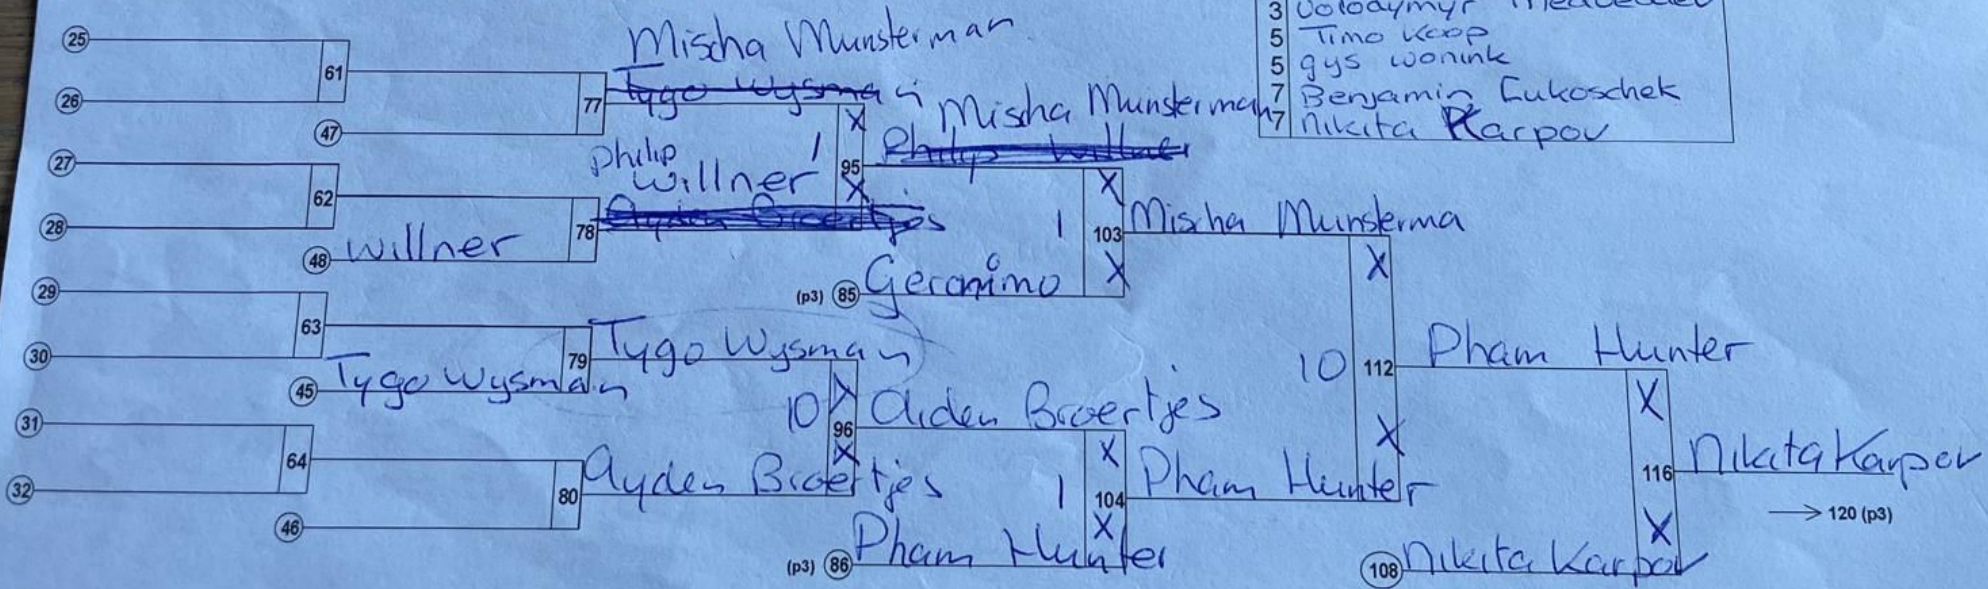 3 Volodymyr
5 Timo Koop
5 gys wonink
7 Benjamin Lukoschek
7 Nikita Karpov
25
61
26
47
77
Mischa Munsterman
Tygo Wysman
X
1
95
X
Mischa Munsterman
Philip Willner
27
62
28
48 Willner
78
Philip
Willner
Ayden Broertjes
X
1
103
X
Mischa Munsterma
(p3) 85 Geronimo
29
63
30
45 Tygo Wysman
79
Tygo Wysman
X
10
96
X
Aiden Broertjes
31
64
32
46
80
Ayden Broertjes
X
1
104
X
Pham Hunter
(p3) 86 Pham Hunter
X
10
112
X
Pham Hunter
X
116
X
Nikita Karpov
→ 120 (p3)
108 Nikita Karpov